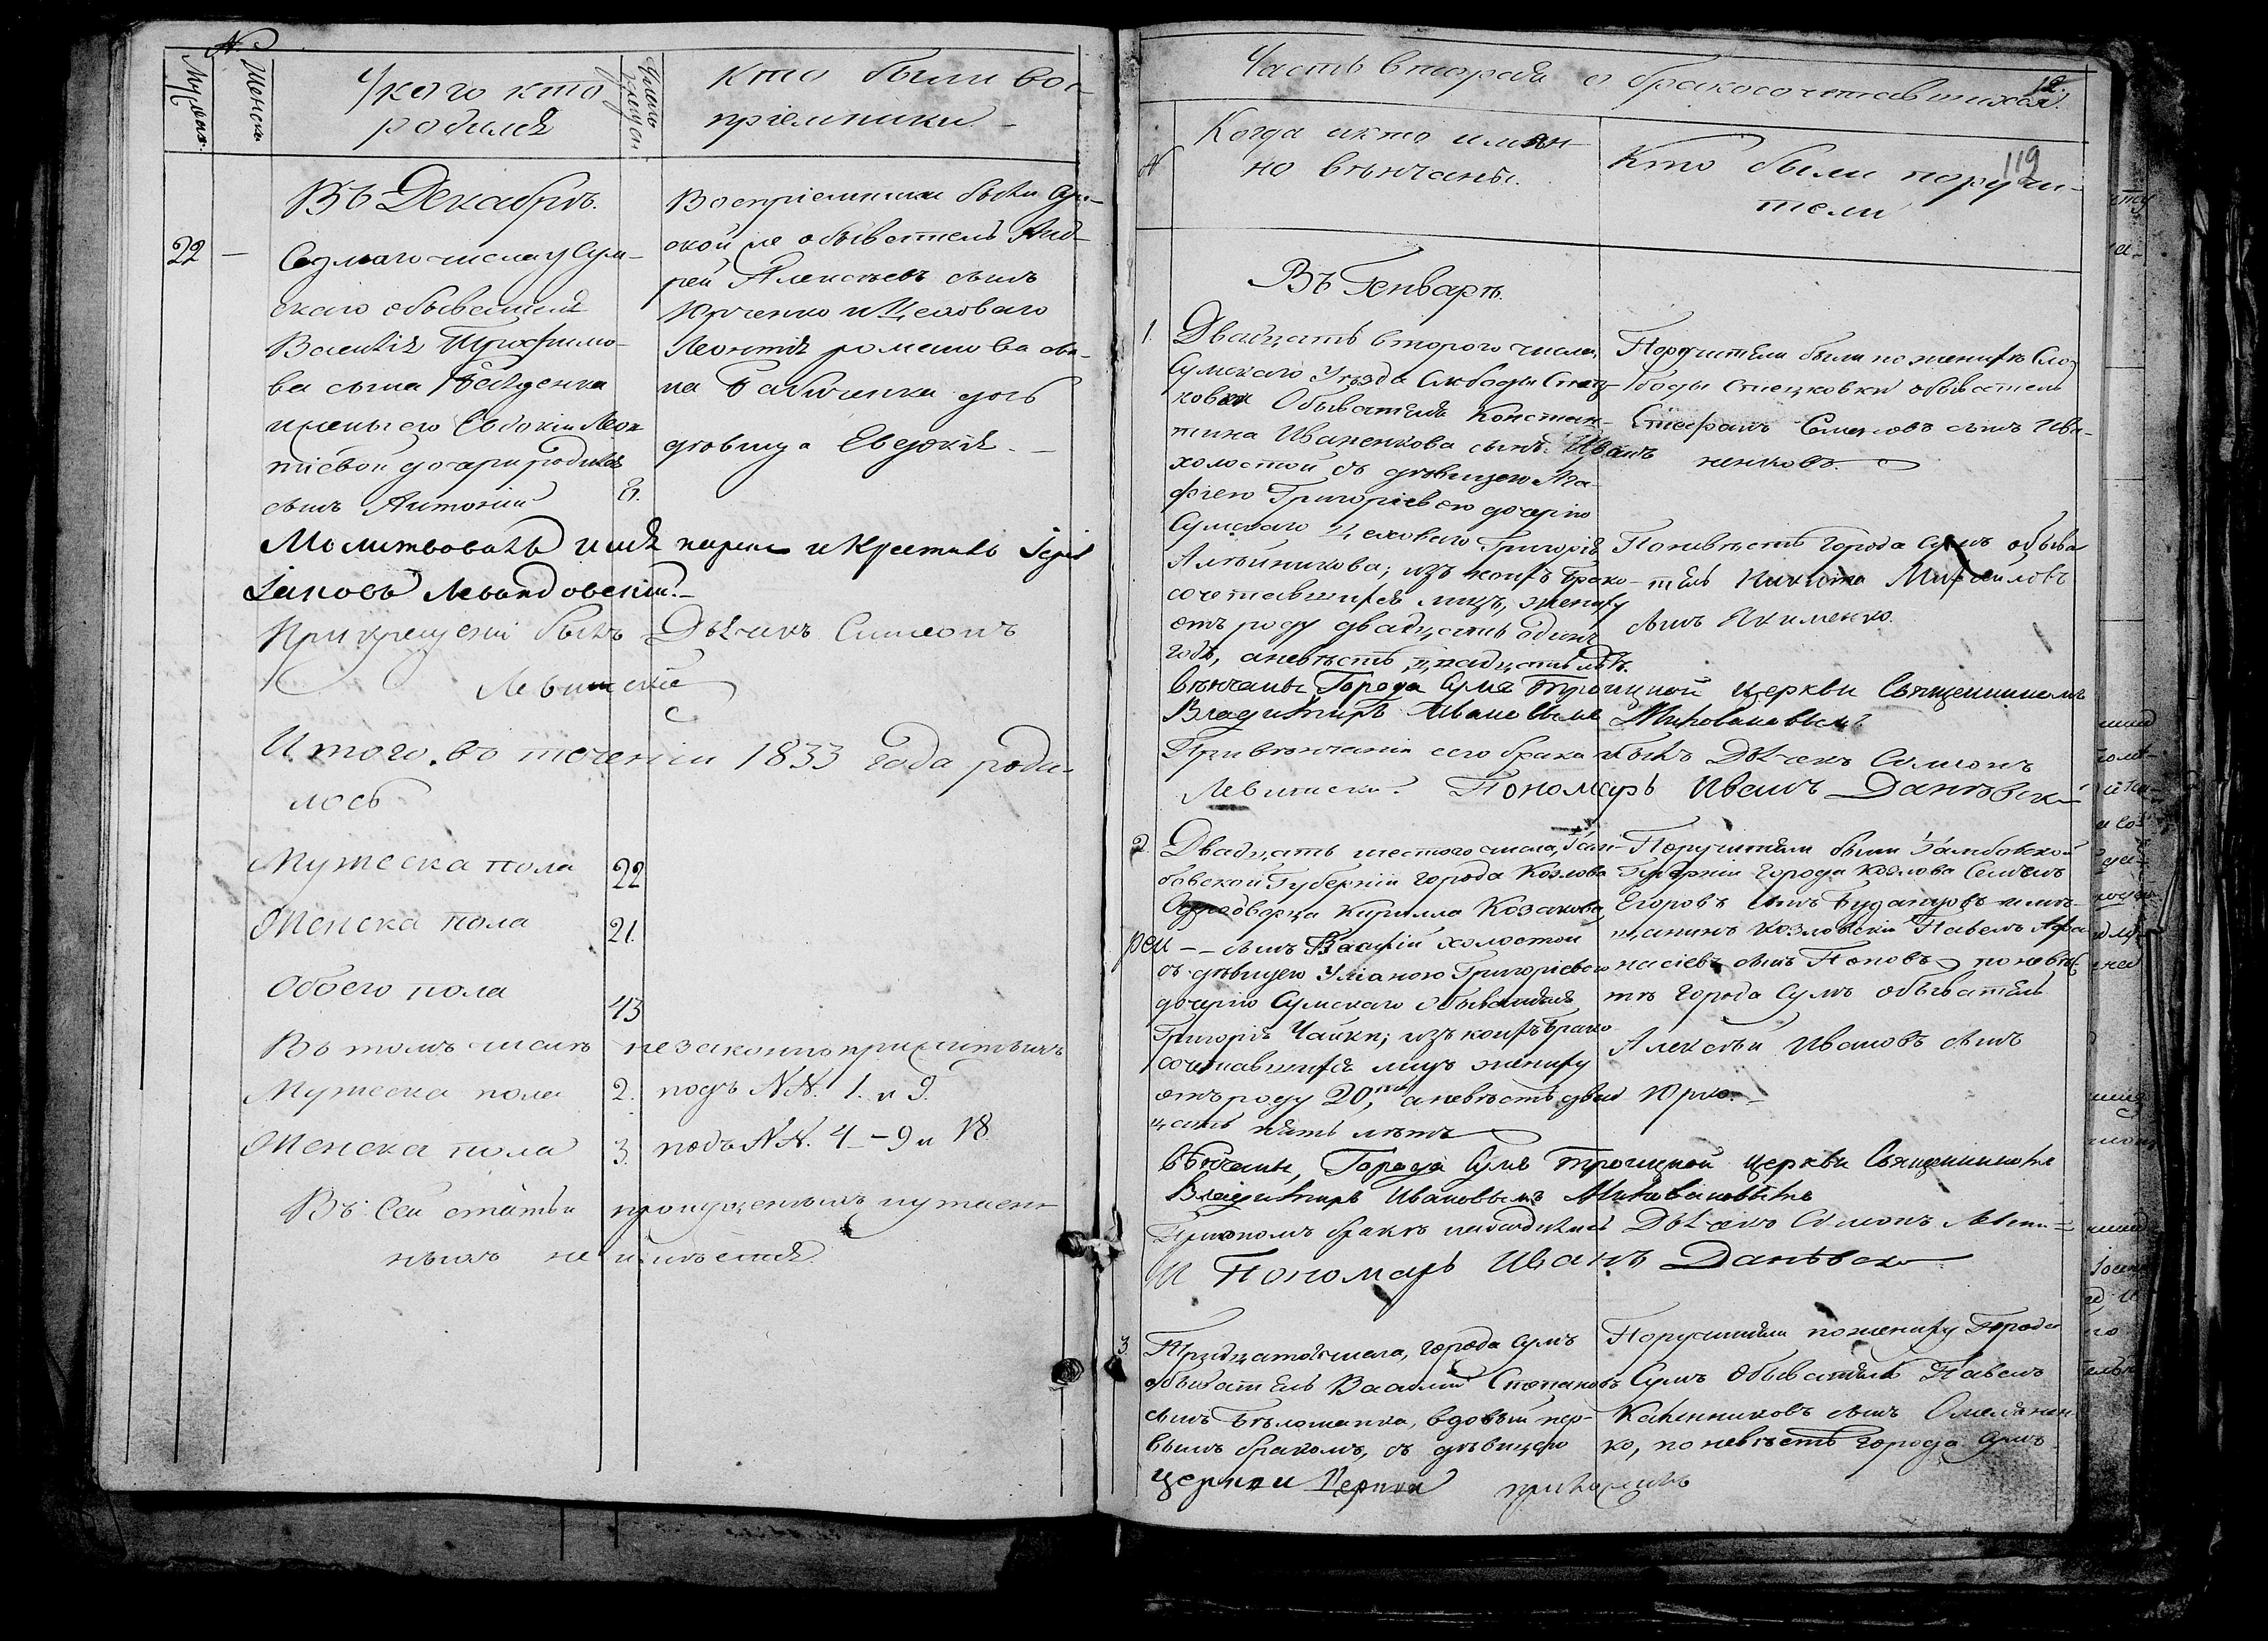 №
Мужеск.
Женск.
У кого кто
родился
Число
крещен.
Кто были вос-
пріемники
Въ Декабрѣ.
22 —
Седмаго числа у Сум-
скаго обывателя
Василія Трофимо-
ва сына
и жены его Евдокіи Леон
тіевой дочери родился
сынъ Антоній
8.
Воспріемники были Сум-
ской же обыватель Анд-
рей Алексѣевъ сынъ
Юрченко и Цеховаго
Леонтія романова сы-
на Бабиченка дочь
дѣвица Евдокія. —
Молитвовалъ имя нареклъ и Крестилъ Іерей
Іаковъ Левандовскій. —
При крещеніи былъ Дьячекъ Симеонъ
Левитскій
Итого во теченіи 1833 года роди-
лось
Мужеска пола 22
Женска пола 21.
Обоего пола 43
Въ томъ числѣ незаконноприжитыхъ
Мужеска пола 2. подъ №№. 1. и 9.
Женска пола 3. подъ №№. 4 – 9 и 18
Въ сей статьи пропущенныхъ
нымъ не имѣется.
Часть вторая о бракосочетавшихся.
12.
119
№
Когда и кто имян-
но вѣнчаны.
Кто были поручи-
тели
Въ Генварѣ.
1.
Двадцать втораго числа,
Сумскаго Уѣзда Слободы Стец-
ковки Обывателя Констан-
тина Иваненкова сынъ Иванъ
холостой съ дѣвицею Ма-
фіею Григоріевою дочерю
Сумскаго Цеховаго Григорія
Алейникова; изъ коихъ Брако-
сочетавшихся лицъ, жениху
отъ роду двадцать одинъ
годъ, а невѣстѣ лѣтъ.
Поручители были по женихѣ Сло
боды Стецковки обыватель
Стефанъ Семеновъ сынъ Ива-
ненковъ.
По невѣстѣ города Сумъ обыва
тель Никита Михайловъ
сынъ Якименко.
Вѣнчаны Города Сумъ Троицкой церкви Священникомъ
Владимиръ Ивановымъ
При вѣнчаніи сего брака былъ Дьячекъ Симеонъ
Левитскій. Пономарь Иванъ Данѣвскій
2.
Двадцать шестого числа, Там-
бовской Губерніи города Козлова
Однодворца Кирилла Козакова
сынъ Василій холостой
съ дѣвицею Уліаною Григоріевою
дочерю Сумскаго обывателя
Григорія Чайки; изъ коихъ Брако
сочетавшихся лицъ жениху
отъ роду 20, а невѣстѣ двад
цать пять лѣтъ
Поручители были Тамбовской
Губерніи города Козлова Семенъ
Егоровъ сынъ и мѣ-
щанинъ козловскій Павелъ Афа
насіевъ сынъ Поповъ по невѣс
тѣ города Сумъ обыватель
Алексѣй Ивановъ сынъ
Юрко. —
Вѣнчаны, Города Сумъ Троицкой церкви Священникомъ
Владимиръ Ивановымъ
При томъ бракѣ находился Дьячекъ Симеонъ
И Пономарь Иванъ Данѣвскій
3.
Тридцатого числа, города Сумъ
обыватель Василій Степановъ
сынъ Бѣлошапка, вдовый пер-
вымъ бракомъ, съ дѣвицею
Поручители по жениху Города
Сумъ Обыватель Павелъ
сынъ Омельянен
ко, по невѣстѣ города Сумъ
церкви